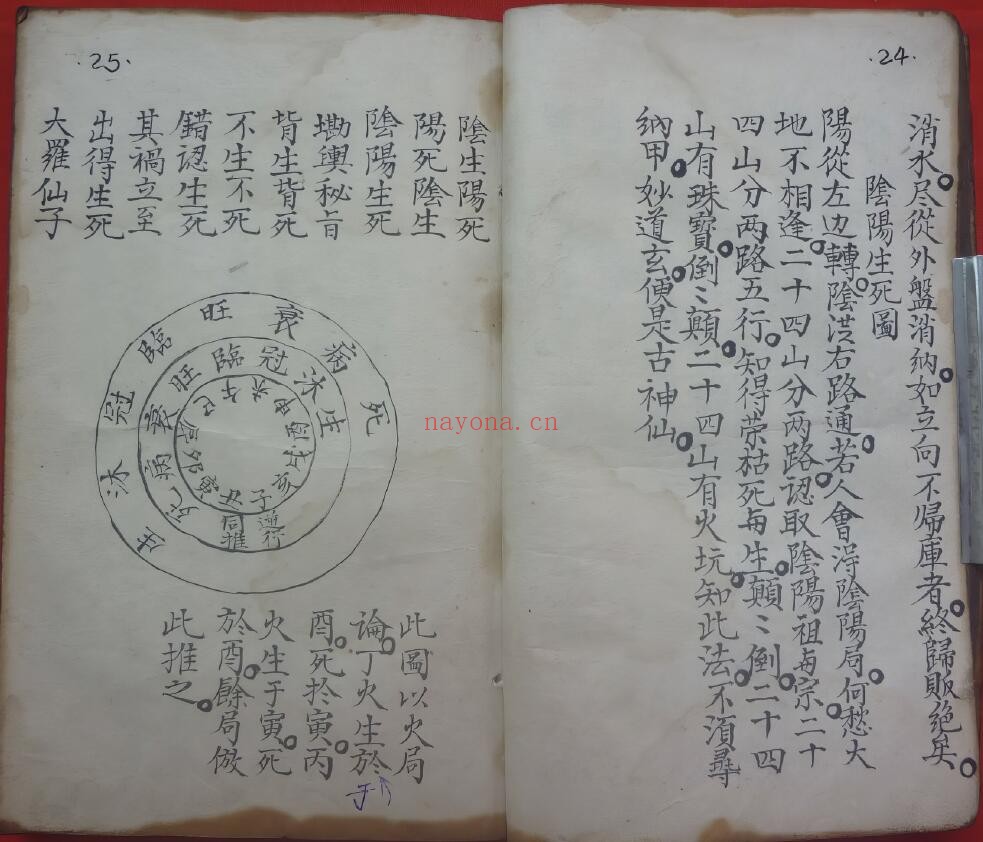 .24.
消水。尽從外盤消納。如立向不歸庫者。終歸敗絶矣。
陰陽生死圖
陽從左边轉。陰從右路通。若人會得陰陽局。何愁大
地不相逢。二十四山分两路。認取陰陽祖与宗。二十
四山分两路五行。知得荣枯死与生。顛〻倒。二十四
山有珠寶。倒〻顛。二十四山有火坑。知此法。不須尋
納甲。妙道玄。便是古神仙。
.25.
陰生陽死
陽死陰生
陰陽生死
墈輿秘旨
皆生皆死
不生不死
錯認生死
其禍立至
出得生死
大羅仙子
生沐冠臨旺衰病死
生沐冠臨旺衰病死
子丑寅卯辰巳午未申酉戌亥
逆行
同推
此圖以火局
論。丁火生於
酉。死於寅。丙
火生于寅。死
於酉。餘局倣
此推之。
于
nayona.cn